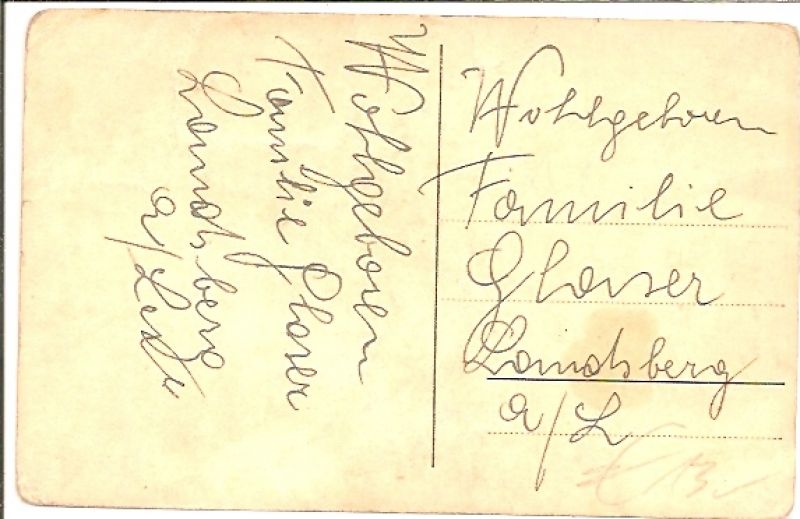 Wohlgeboren
Familie Glaser
Landsberg
a/Lech
Wohlgeboren
Familie
Glaser
Landsberg
a/L